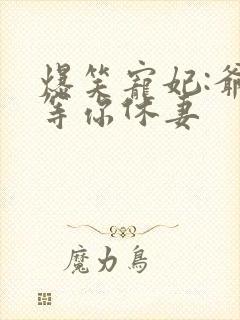 爆笑寵妃:爺
等你休妻
魔力鳥